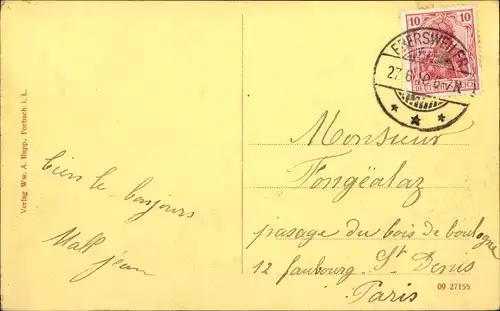 10 10
EBERSWEILER
27.6.10 6-7N
DEUTSCHES REICH
Verlag Ww. A. Rupp, Forbach i. L.
Monsieur
Fongéalaz
pasage du bois de boulogne
12 faubourg St Denis
Paris
bien le bonjours
Mall jean
09 27155